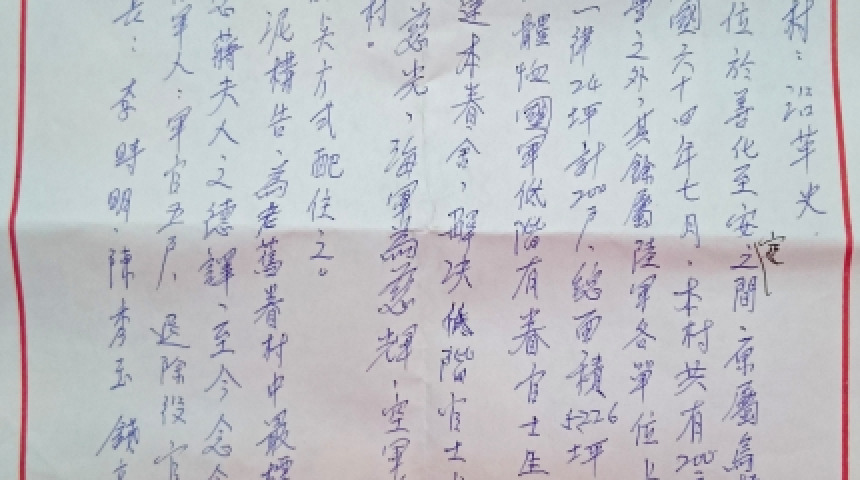 村：沿革史．
位於善化至安定之間，原屬烏
國六十四年七月，本村共有200
之外，其餘屬陸軍各單位
一律24坪計200戶，總面積5226坪
體恤國軍低階有眷官士
建本眷舍，解決低階官士
慈光，海軍為慈輝，空軍
村。
方式配住之。
泥構告，為老舊眷村中最
蔣夫人之德譯，至今念念
軍人：軍官五戶，退除役官
長：李時明，陳李玉